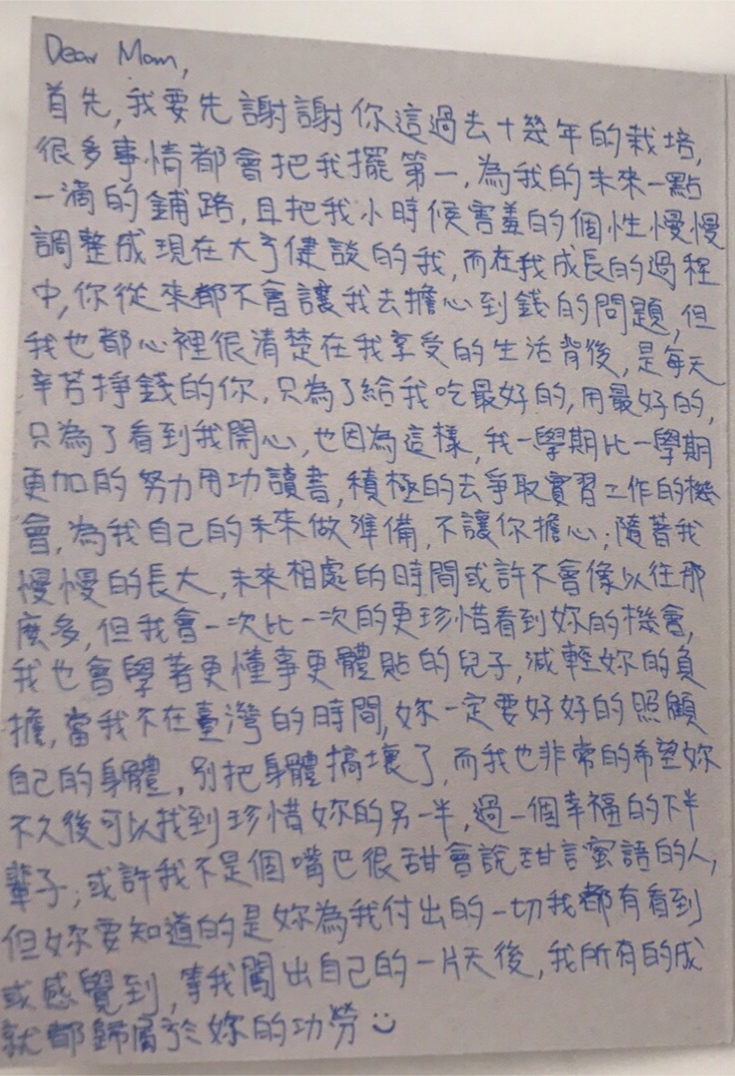 Dear Mom,
首先,我要先謝謝你這過去十幾年的栽培,
很多事情都會把我擺第一,為我的未來一點
一滴的鋪路,且把我小時候害羞的個性慢慢
調整成現在大了健談的我,而在我成長的過程
中,你從來都不會讓我去擔心到錢的問題,但
我也都心裡很清楚在我享受的生活背後,是每天
辛苦掙錢的你,只為了給我吃最好的,用最好的,
只為了看到我開心,也因為這樣,我一學期比一學期
更加的努力用功讀書,積極的去爭取實習工作的機
會,為我自己的未來做準備,不讓你擔心;隨著我
慢慢的長大,未來相處的時間或許不會像以往那
麼多,但我會一次比一次的更珍惜看到妳的機會,
我也會學著更懂事更體貼的兒子,減輕妳的負
擔,當我不在臺灣的時間,妳一定要好好的照顧
自己的身體,別把身體搞壞了,而我也非常的希望妳
不久後可以找到珍惜妳的另一半,過一個幸福的下半
輩子;或許我不是個嘴巴很甜會說甜言蜜語的人,
但妳要知道的是妳為我付出的一切我都有看到
或感覺到,等我闖出自己的一片天後,我所有的成
就都歸屬於妳的功勞